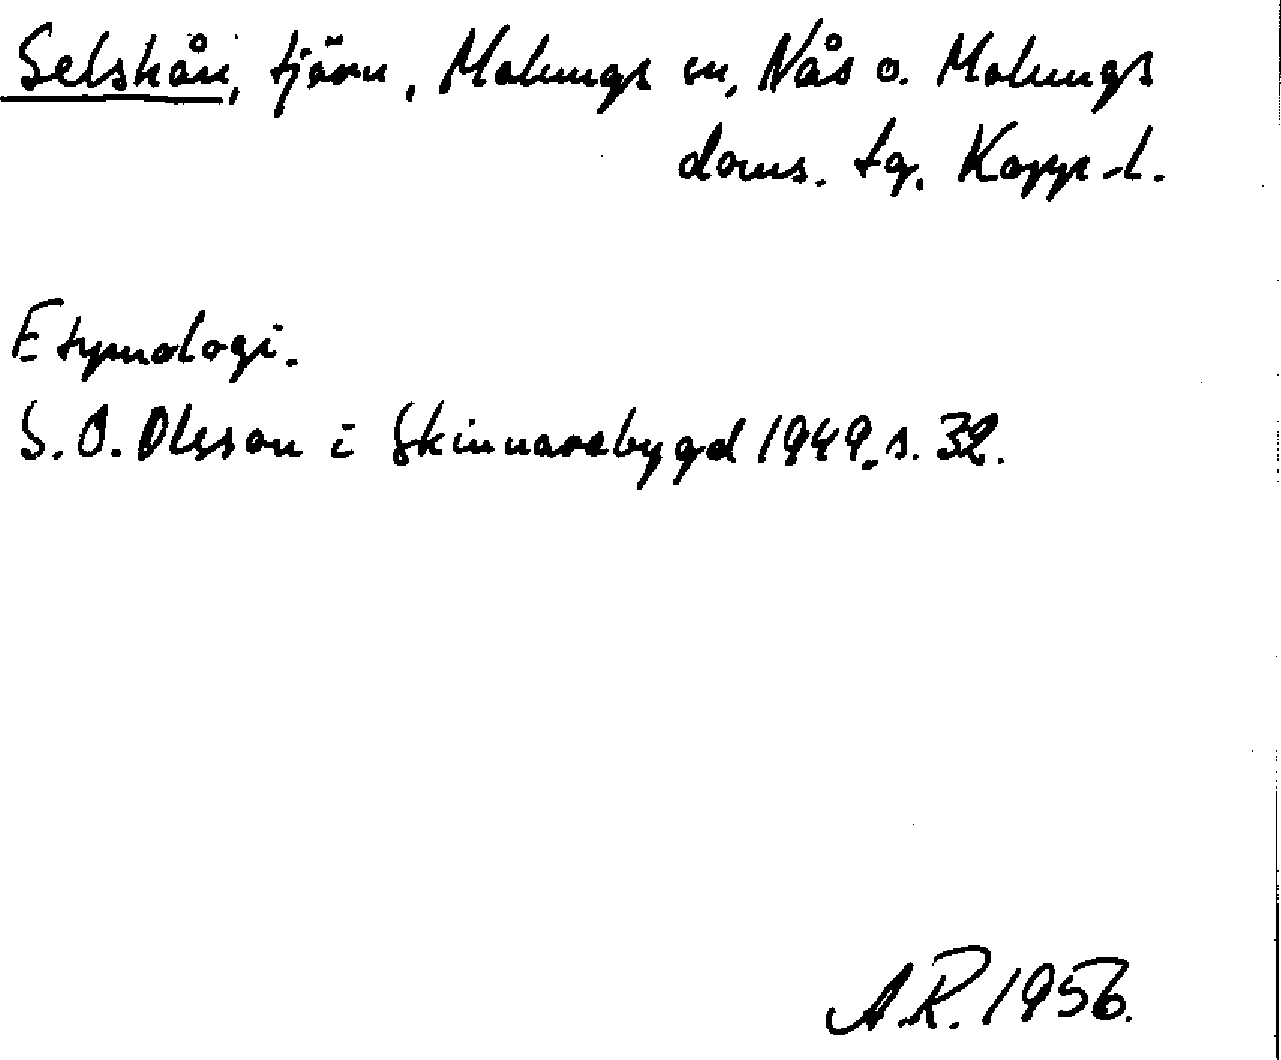 Selshån, tjärn, Malungs sn, Nås o. Malungs
doms. tg. Kopp-l.
Etymologi.
S.O. Olsson i Skinnarebygd 1949. s. 32.
A.R. 1956.